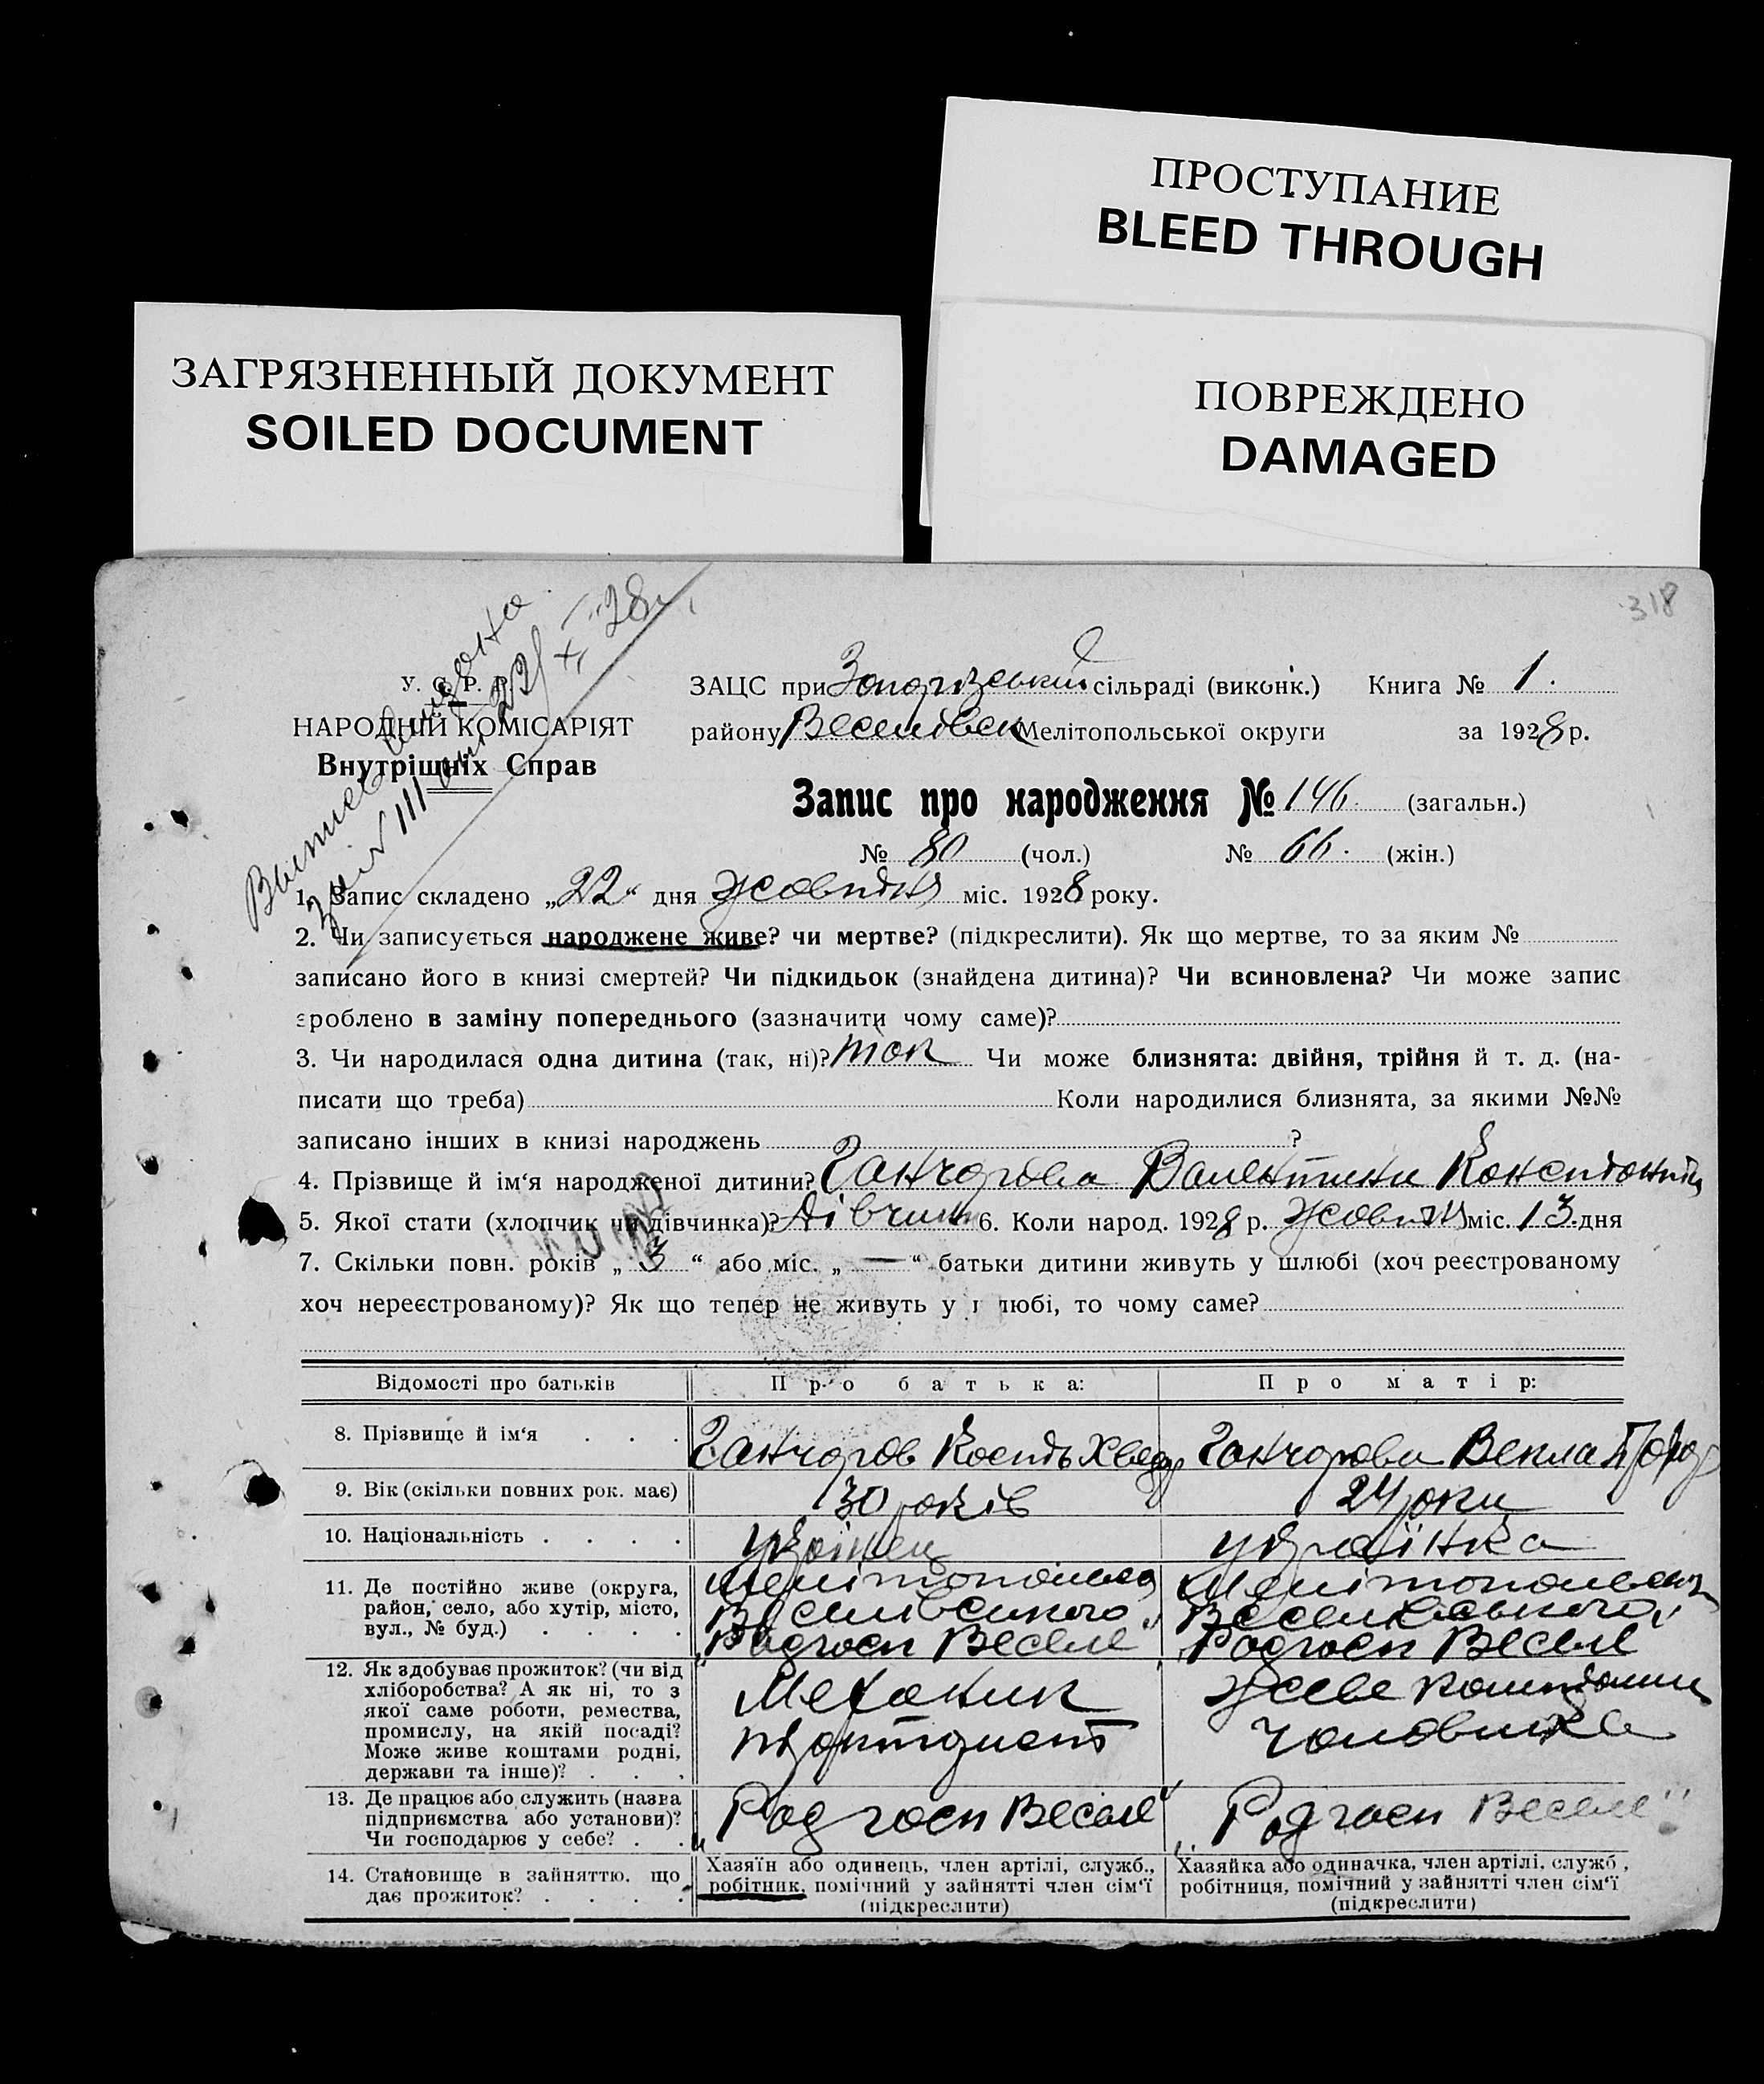 ПРОСТУПАНИЕ
BLEED THROUGH
ЗАГРЯЗНЕННЫЙ ДОКУМЕНТ
SOILED DOCUMENT
ПОВРЕЖДЕНО
DAMAGED
318
У. С. Р. Р.
НАРОДНІЙ КОМІСАРІЯТ
Внутрішніх Справ
ЗАЦС при сільраді (виконк.) Книга № 1.
району Веселівськ Мелітопольської округи за 1928 р.
Запис про народження № 146. (загальн.)
№ 80 (чол.) № 66. (жін.)
1. Запис складено „22“ дня жовтня міс. 1928 року.
2. Чи записується народжене живе? чи мертве? (підкреслити). Як що мертве, то за яким №
записано його в книзі смертей? Чи підкидьок (знайдена дитина)? Чи всиновлена? Чи може запис
зроблено в заміну попереднього (зазначити чому саме)?
3. Чи народилася одна дитина (так, ні)? так Чи може близнята: двійня, трійня й т. д. (на-
писати що треба) Коли народилися близнята, за якими №№
записано інших в книзі народжень ?
4. Прізвище й ім‘я народженої дитини? Ганчарова Валентина
5. Якої стати (хлопчик чи дівчинка)? Дівчин 6. Коли народ. 1928 р. жовтня міс. 13. дня
7. Скільки повн. років „ 3 “ або міс. „ — “ батьки дитини живуть у шлюбі (хоч реєстрованому
хоч нереєстрованому)? Як що тепер не живуть у шлюбі, то чому саме?
Відомості про батьків Про батька: Про матір:
8. Прізвище й ім‘я . . . Ганчаров Кость Хведор Ганчарова Векла
9. Вік (скільки повних рок. має) 30 років 24 роки
10. Національність . . . . українець українка
11. Де постійно живе (округа,
район, село, або хутір, місто,
вул., № буд.) . . . .
Мелітопольськ
Веселівського
„Радгосп Веселе“
Мелітопольськ
Веселівського
„Радгосп Веселе“
12. Як здобуває прожиток? (чи від
хліборобства? А як ні, то з
якої саме роботи, ремества,
промислу, на якій посаді?
Може живе коштами родні,
держави та інше)? . . .
Механик
живе коштами
чоловика
13. Де працює або служить (назва
підприємства або установи)?
Чи господарює у себе? . .
„Радгосп Веселе“
„Радгосп Веселе“
14. Становище в зайняттю, що
дає прожиток? . . . .
Хазяїн або одинець, член артілі, служб.,
робітник, помічний у зайнятті член сім‘ї
(підкреслити)
Хазяйка або одиначка, член артілі, служб.,
робітниця, помічний у зайнятті член сім‘ї
(підкреслити)